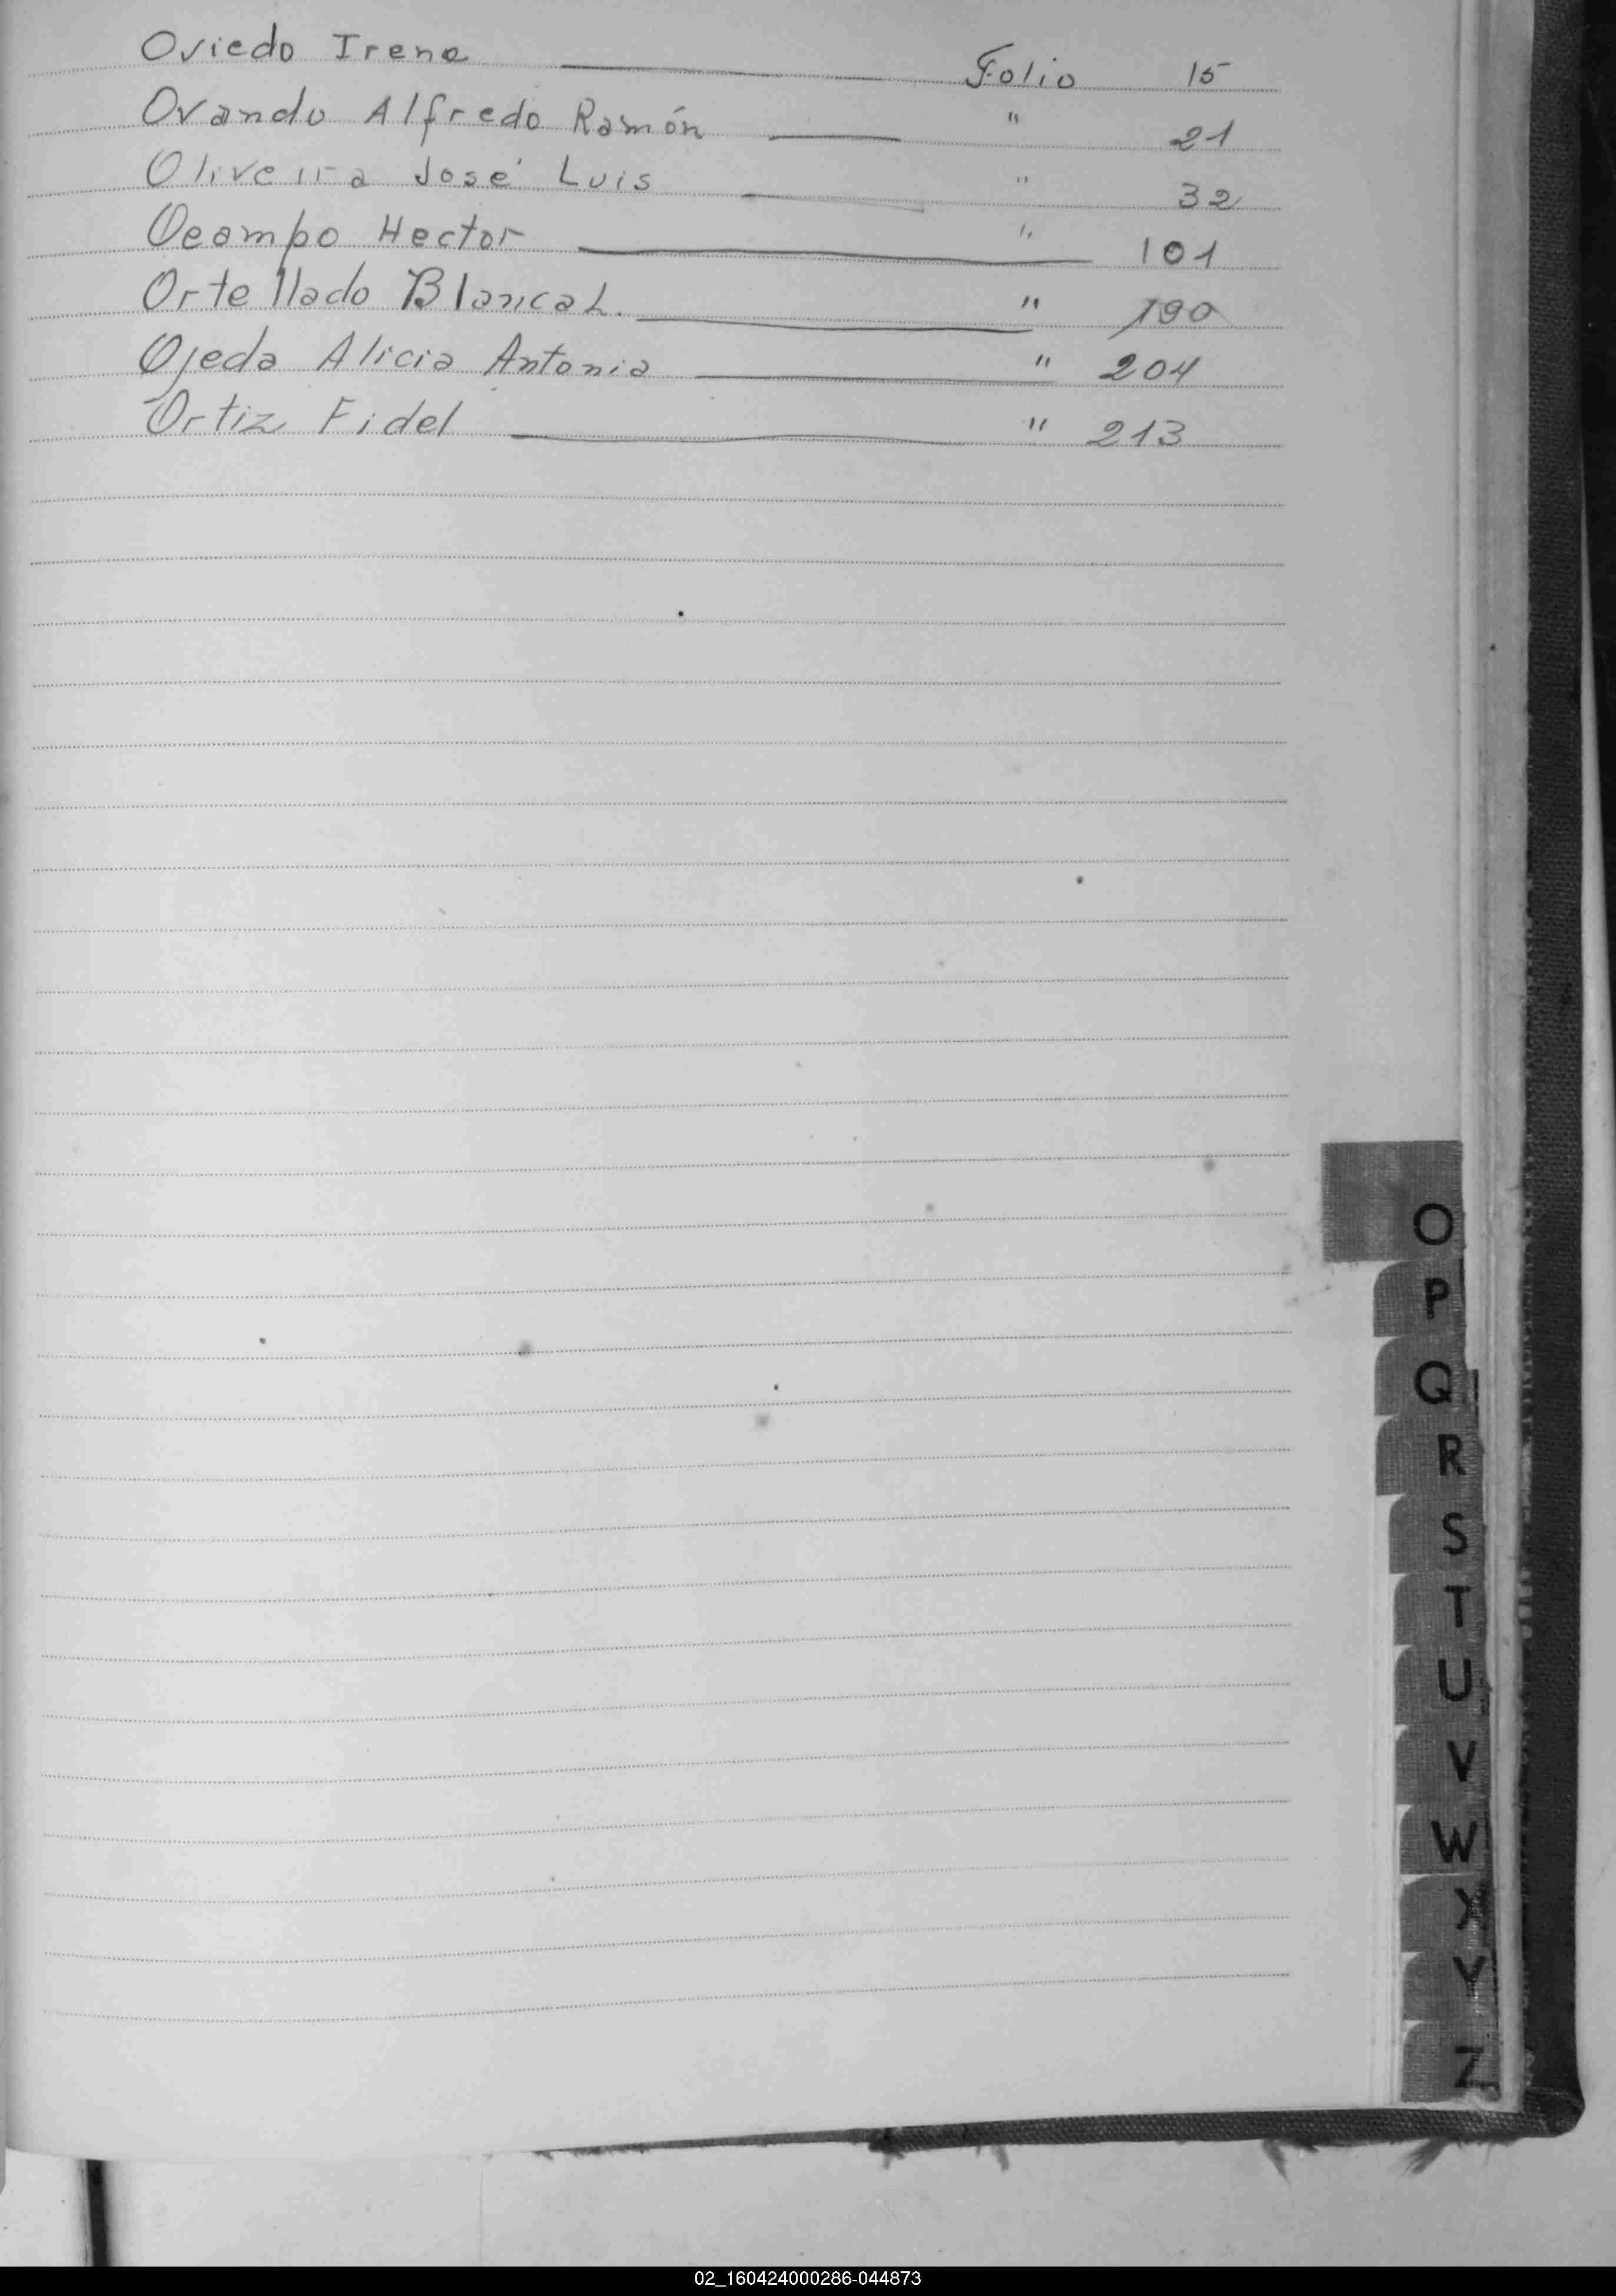 Oviedo Irene Folio 15
Ovando Alfredo Ramón " 21
Oliveira José Luis " 32
Ocampo Hector " 101
Ortellado Blanca L. " 190
Ojeda Alicia Antonia " 204
Ortiz Fidel " 213
O
P
Q
R
S
T
U
V
W
X
Y
Z
02_160424000286-044873